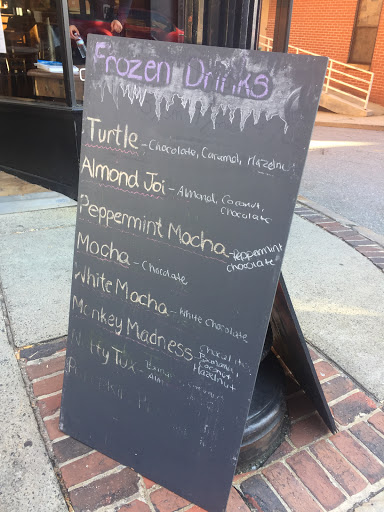 Frozen Drinks
Turtle - Chocolate, Caramel, Hazelnut
Almond Joi - Almond, Coconut,
chocolate
Peppermint Mocha - Peppermint
chocolate
Mocha - Chocolate
White Mocha - White Chocolate
Monkey Madness - Chocolate
Banana
Coconut
Hazelnut
Nutty Tux -